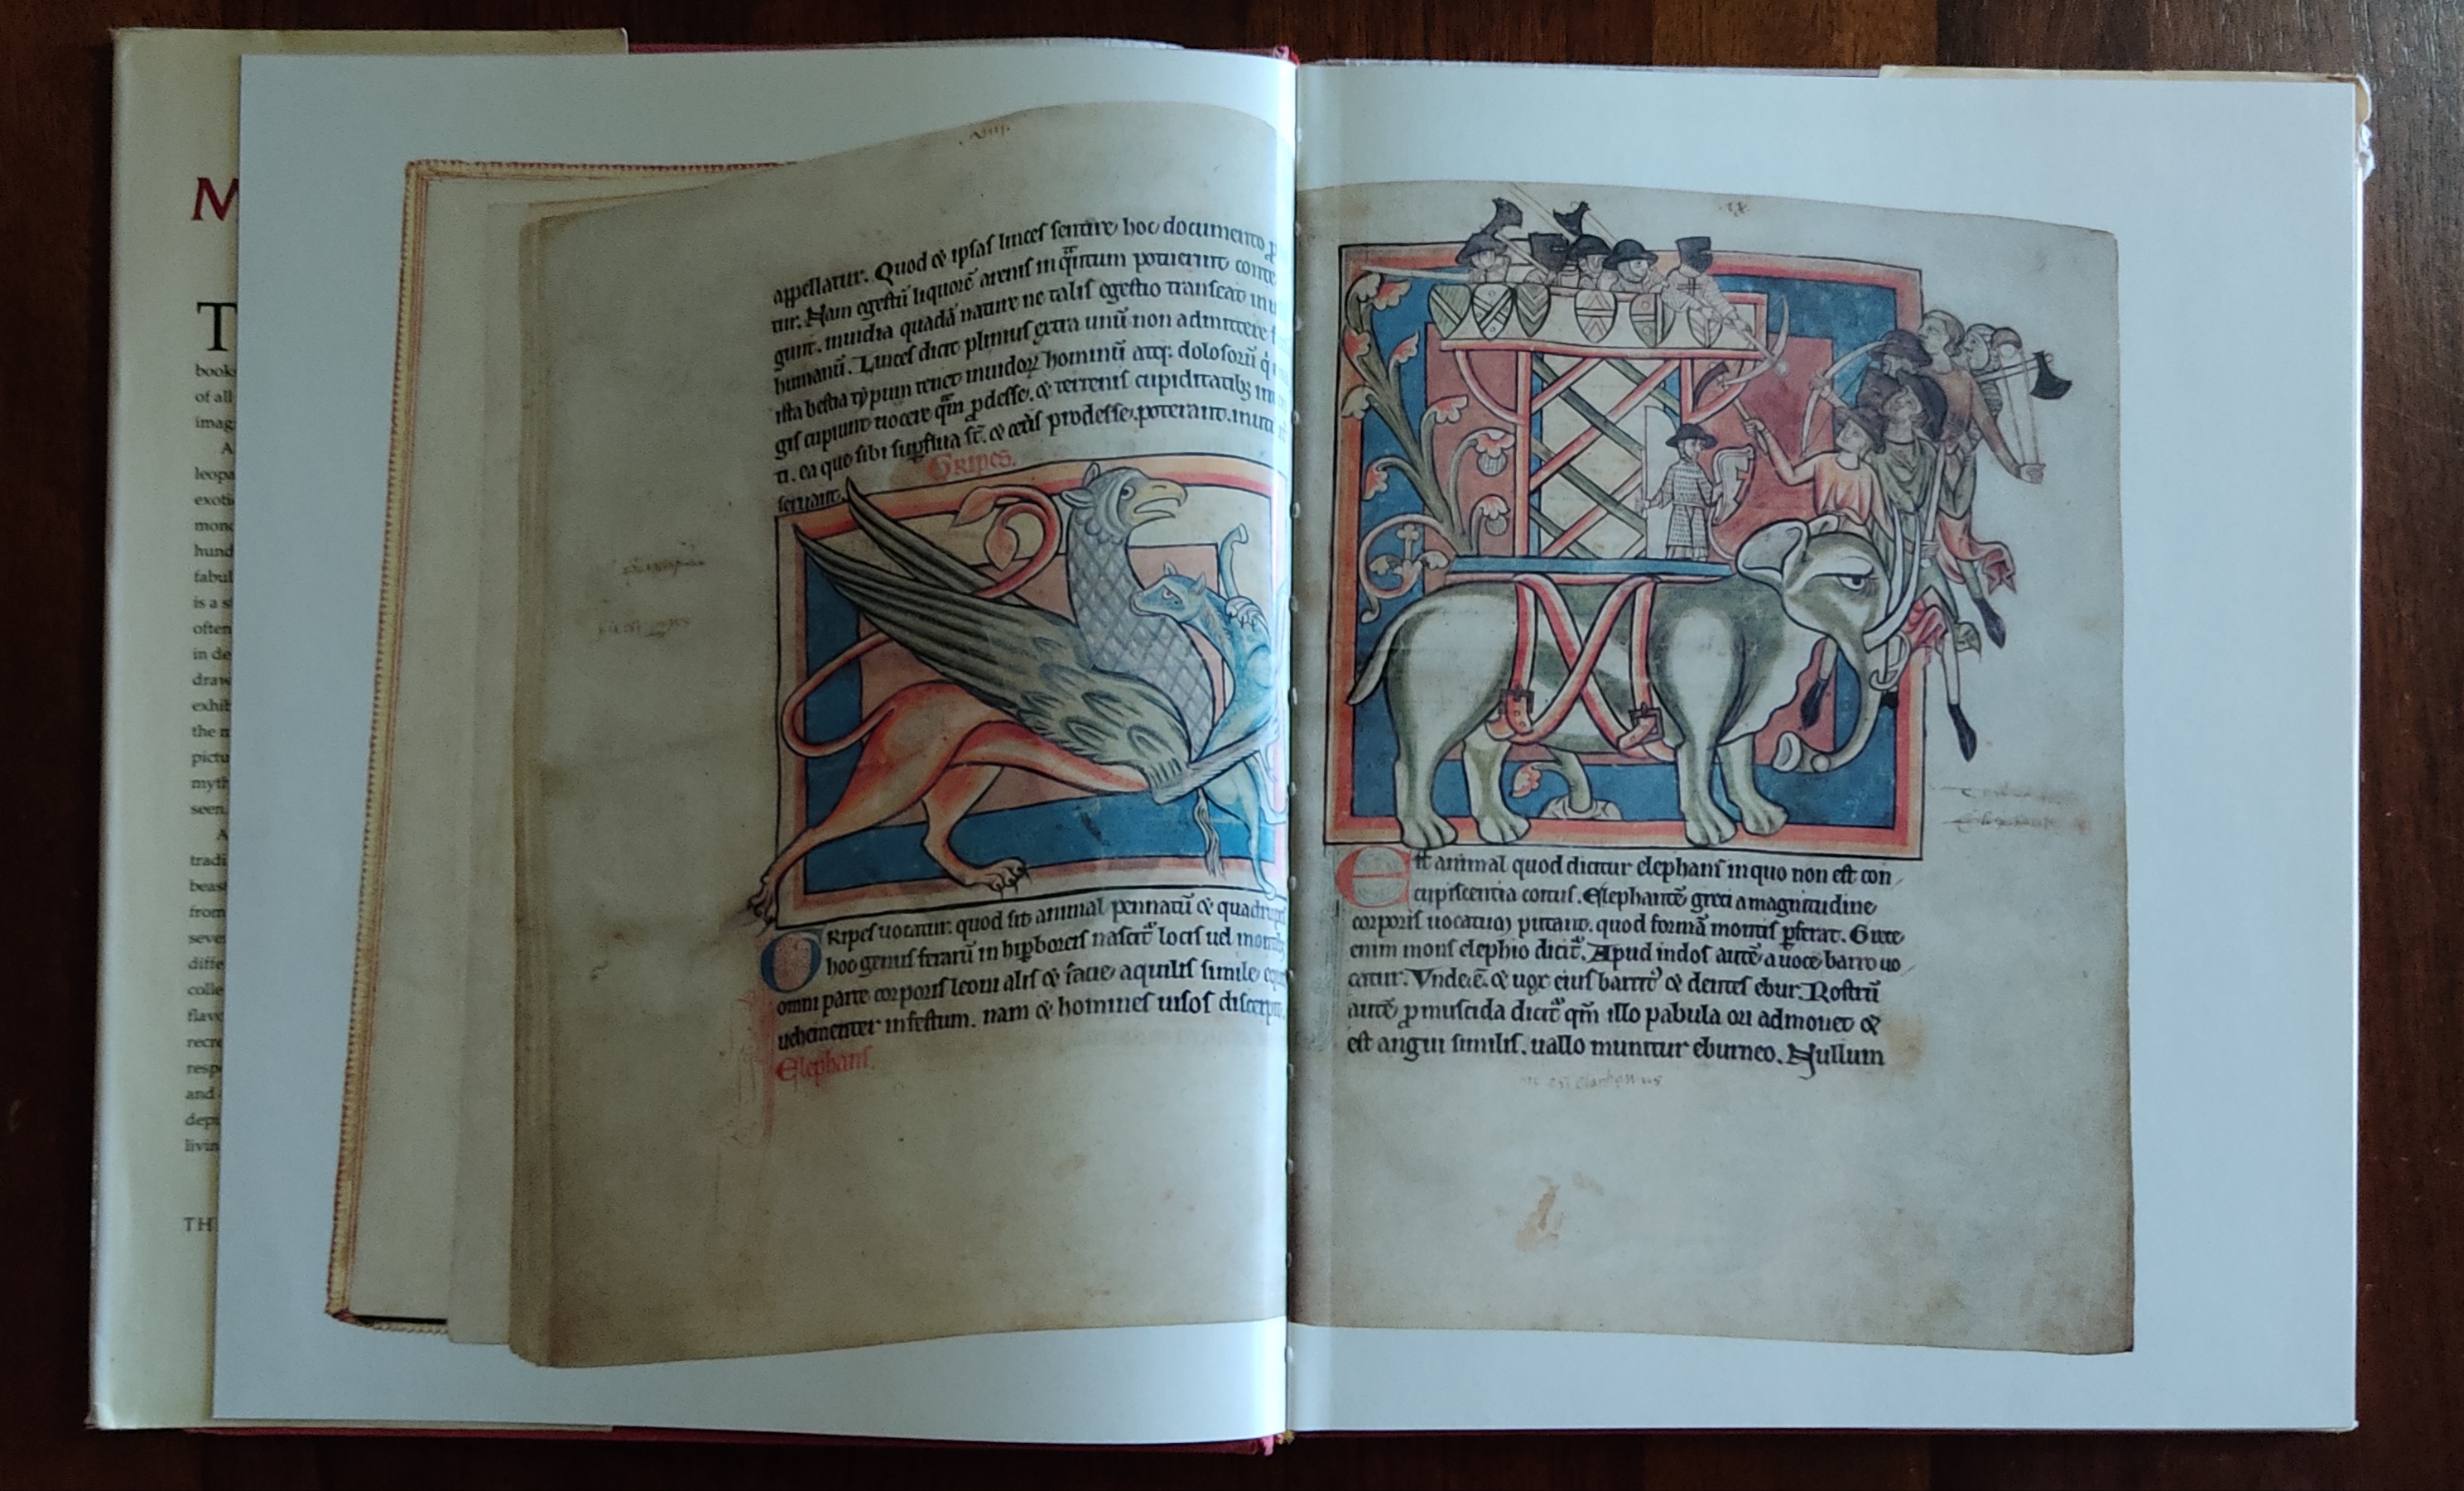 M
T
book
of all
imag
A
leopa
exoti
mons
hund
fabul
is a s
often
in de
draw
exhib
the m
pictu
myth
seen.
A
tradi
beas
from
seve
diffe
colle
flavo
recre
resp
and
depi
livin
TH
appellatur. Quod & ipsas linces sentire hoc documento ꝑ
tur. Nam egestū liquorē arenis in q̄ntum potuerint conte
gunt. inuidia quadā nature ne talis egestio transeat in u
humanū. Linces dicit plinius extra unū non admittere
ista bestia typum tenet inuidoꝝ hominū atq: dolosorū q̇
gis cupiunt nocere qm̄ ꝓdesse. & terrenis cupiditatibꝫ in
ti. ea que sibi suꝑflua st̄. & cet̄is prodesse poterant. inuti
seruant.
Gripes.
Gripes uocatur. quod sit animal pennatū & quadrupes
hoc genus ferarū in hiꝑboreis nascit̄ locis uel montibꝫ
omni parte corporis leoni alis & facie aquilis simile equis
uehementer infestum. nam & homines uisos discerpit.
Elephans.
Est animal quod dicitur elephans in quo non est con
cupiscentia coitus. Elephantē greci a magnitudine
corporis uocatum putant. quod formā montis ꝑferat. Grece
enim mons elephio dicit̄. Apud indos autē a uoce barro uo
catur. Vnde ē. & uox eius barrit᾿ & dentes ebur. Rostrū
autē ꝓmuscida dicit̄ qm̄ illo pabula ori admouet &
est angui similis. uallo munitur eburneo. Nullum